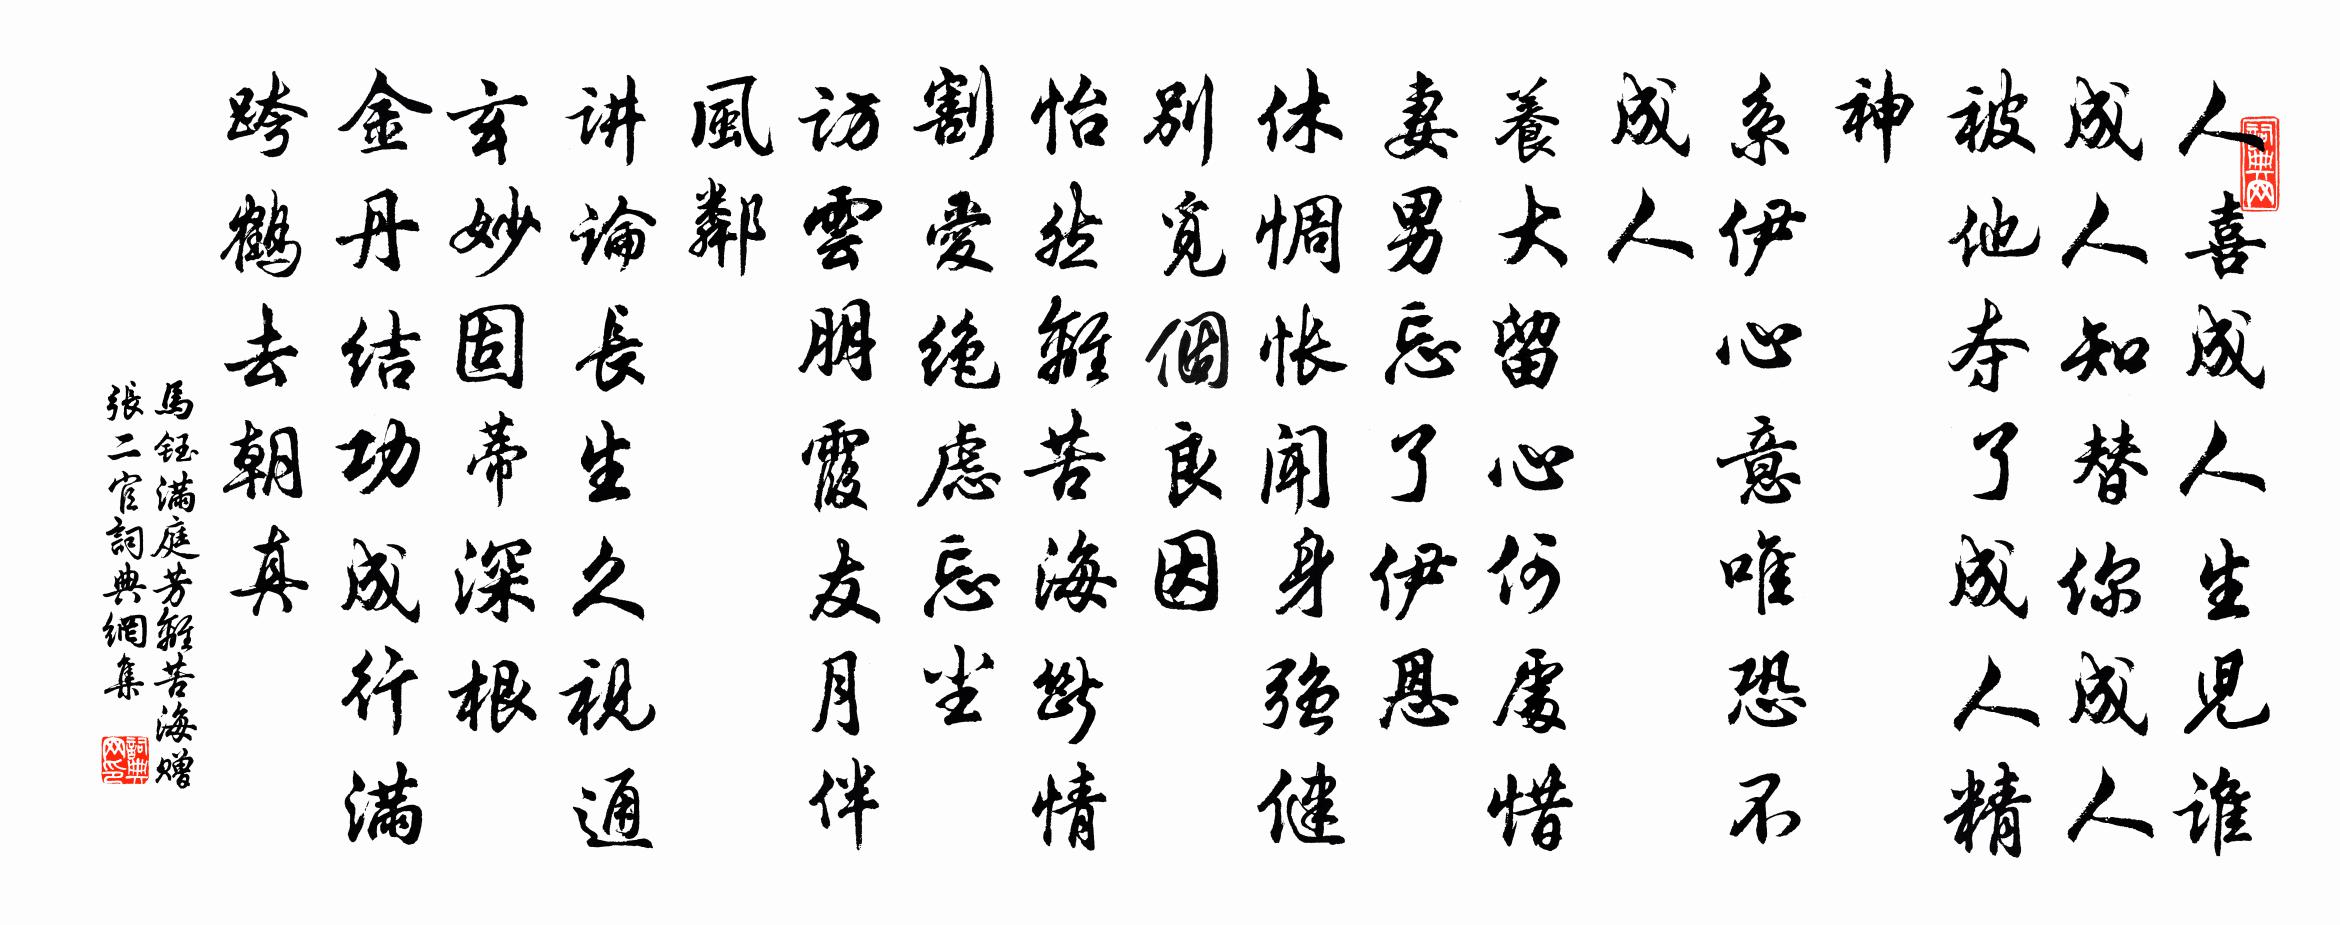 人喜成人生児谁
成人知替你成人
被他夺了成人精
神
系伊心意唯恐不
成人
養大留心何處惜
妻男忘了伊恩
休惆怅闻身强健
別觅個良因
怡然離苦海断情
割愛绝虑忘坐
访雲朋霞友月伴
風鄰
讲論長生久視通
玄妙固蒂深根
金丹结功成行满
跨鶴去朝真
馬钰满庭芳離苦海赠
張二官詞典網集
詞典网
詞典网印